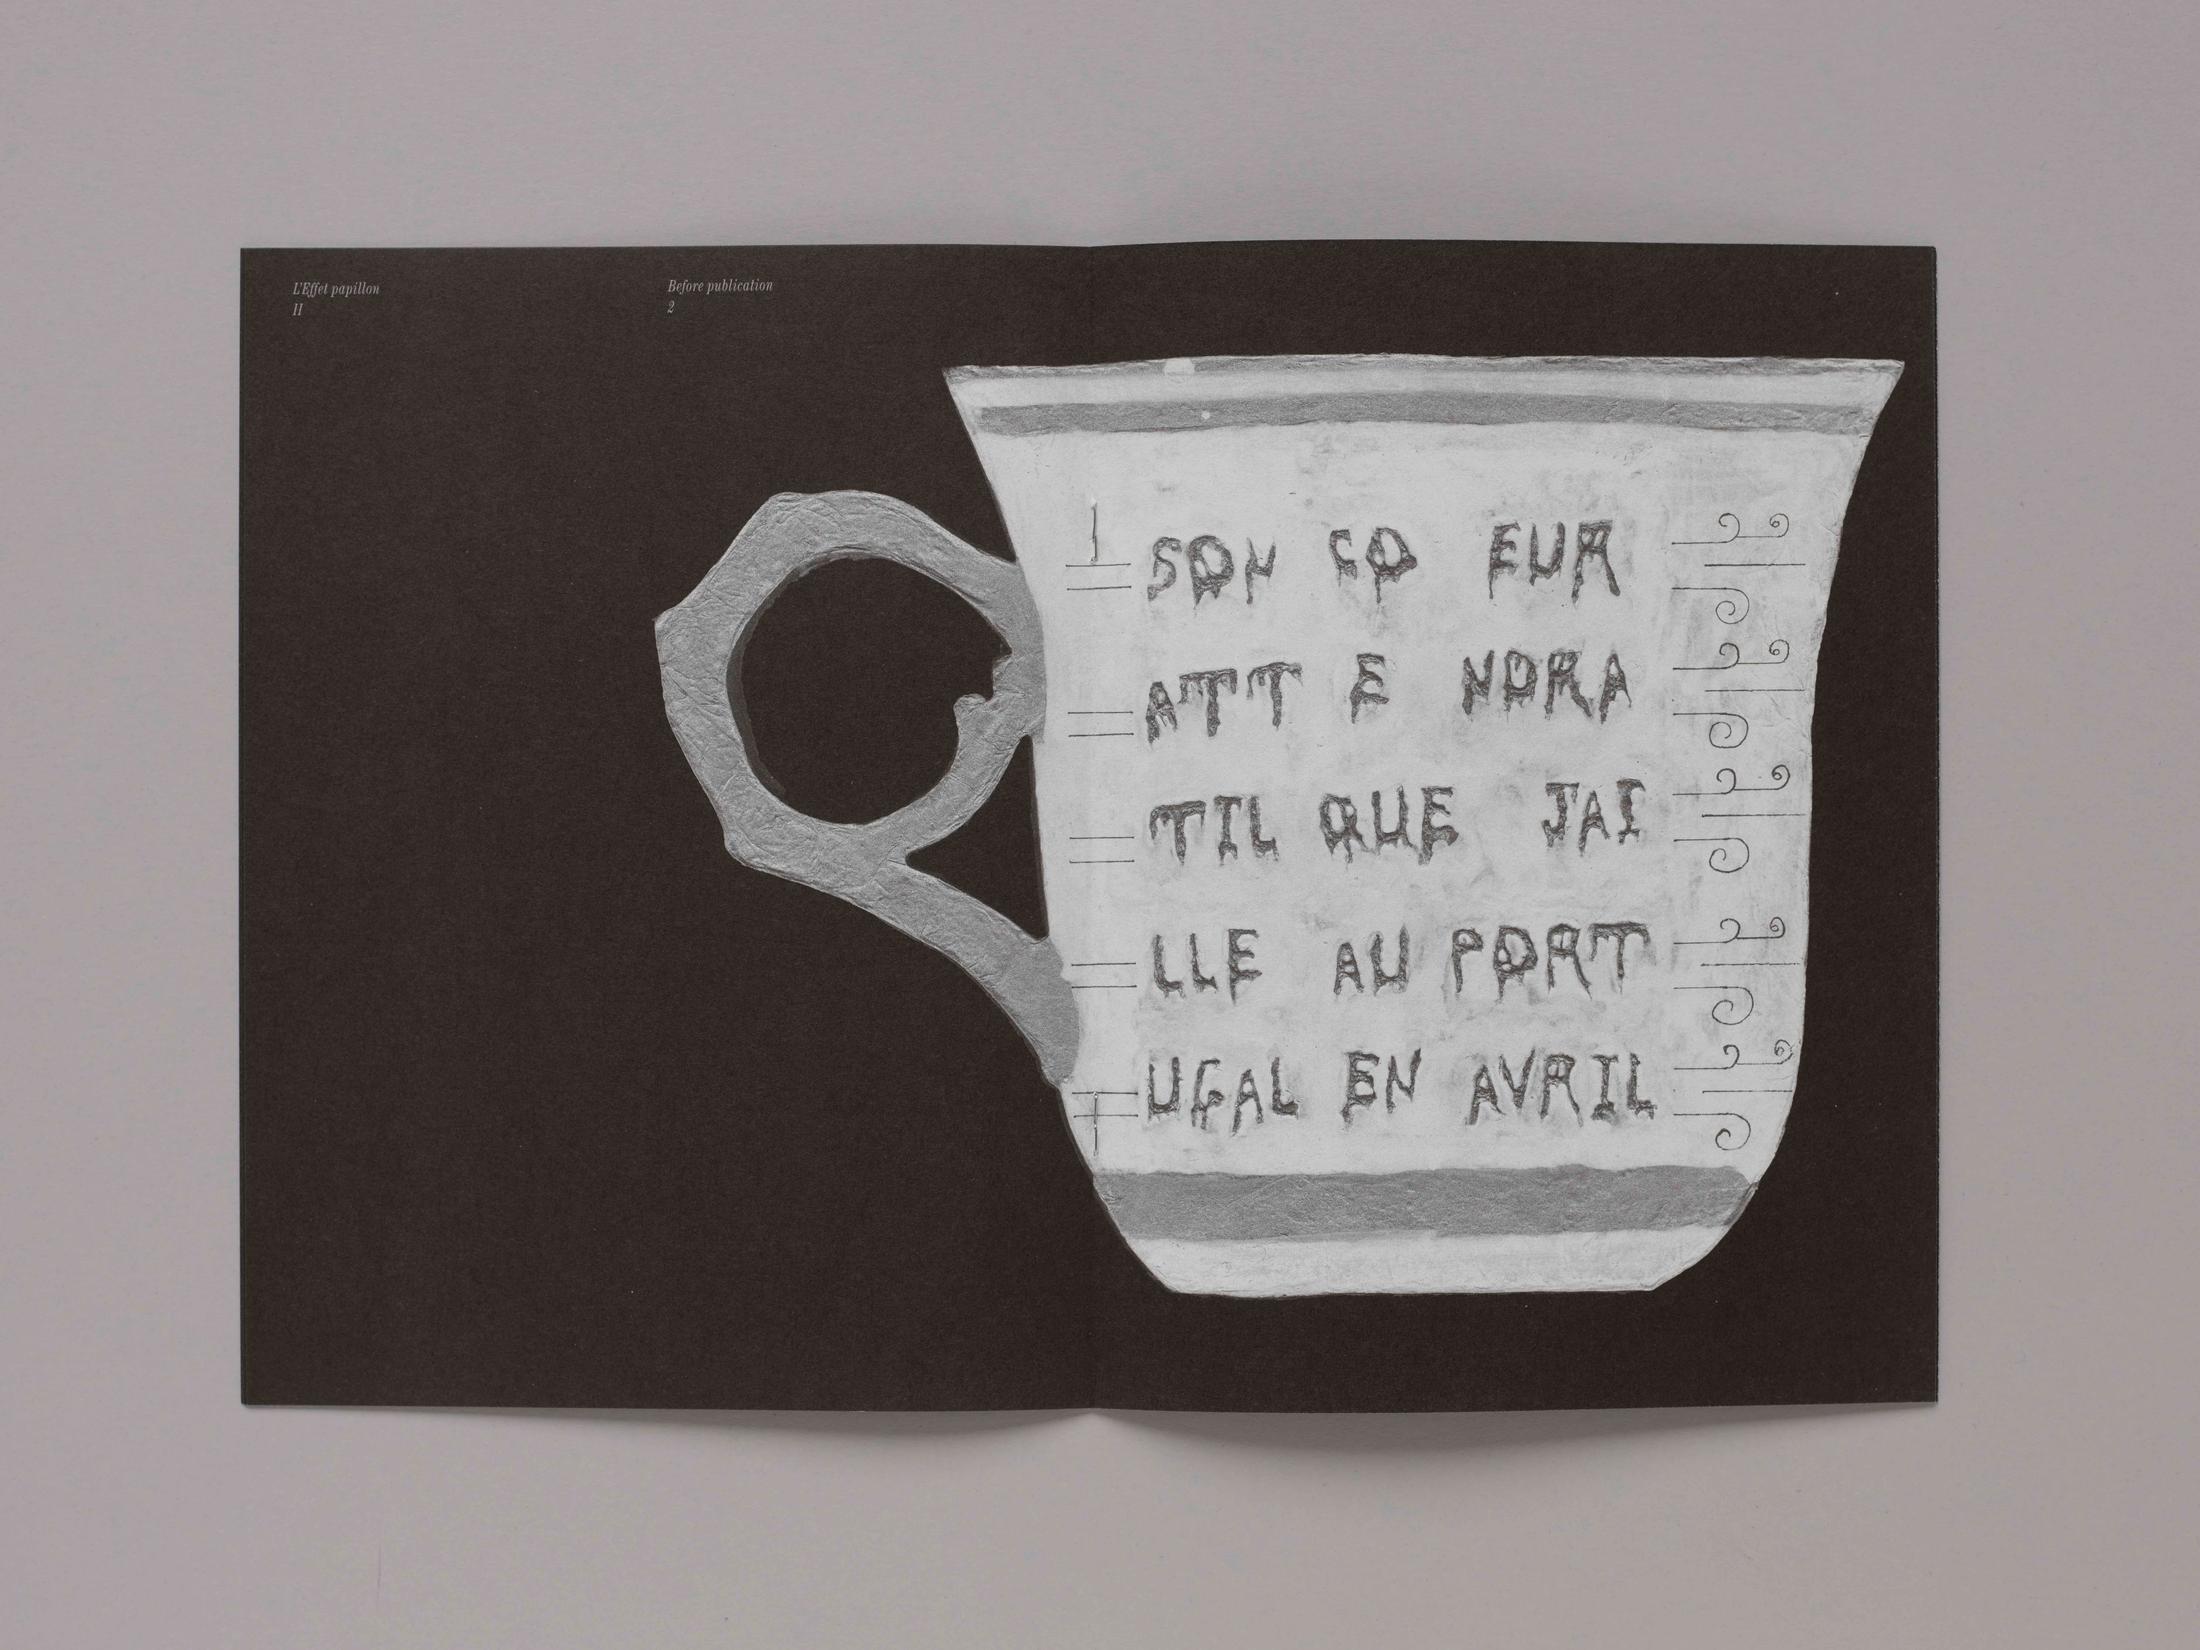 L'Effet papillon
II
Before publication
2
SON CO EUR
ATT E NDRA
TIL QUE JAI
LLE AU PORT
UGAL EN AVRIL